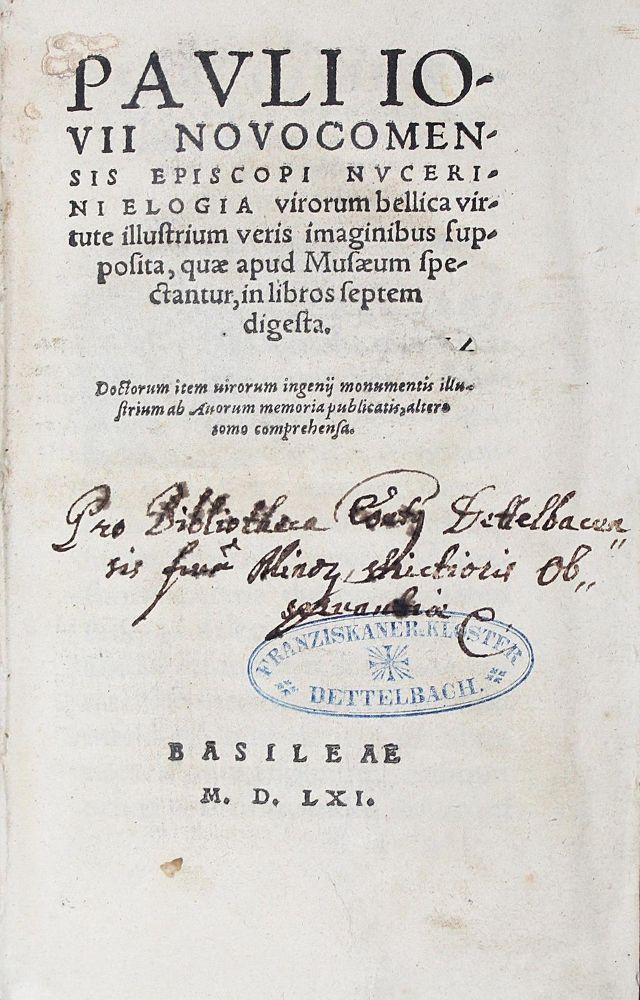 PAVLI IO-
VII NOVOCOMEN-
SIS EPISCOPI NVCERI-
NI ELOGIA virorum bellica vir-
tute illuſtrium veris imaginibus ſup-
poſita, quæ apud Muſæum ſpe-
ctantur, in libros ſeptem
digeſta.
Doctorum item uirorum ingenij monumentis illu-
ſtrium ab Auorum memoria publicatis, altero
tomo comprehenſa.
Pro Bibliotheca Dettelbacen
sis strictioris Ob
servantiæ
FRANZISKANER-KLOSTER
DETTELBACH.
BASILEAE
M. D. LXI.